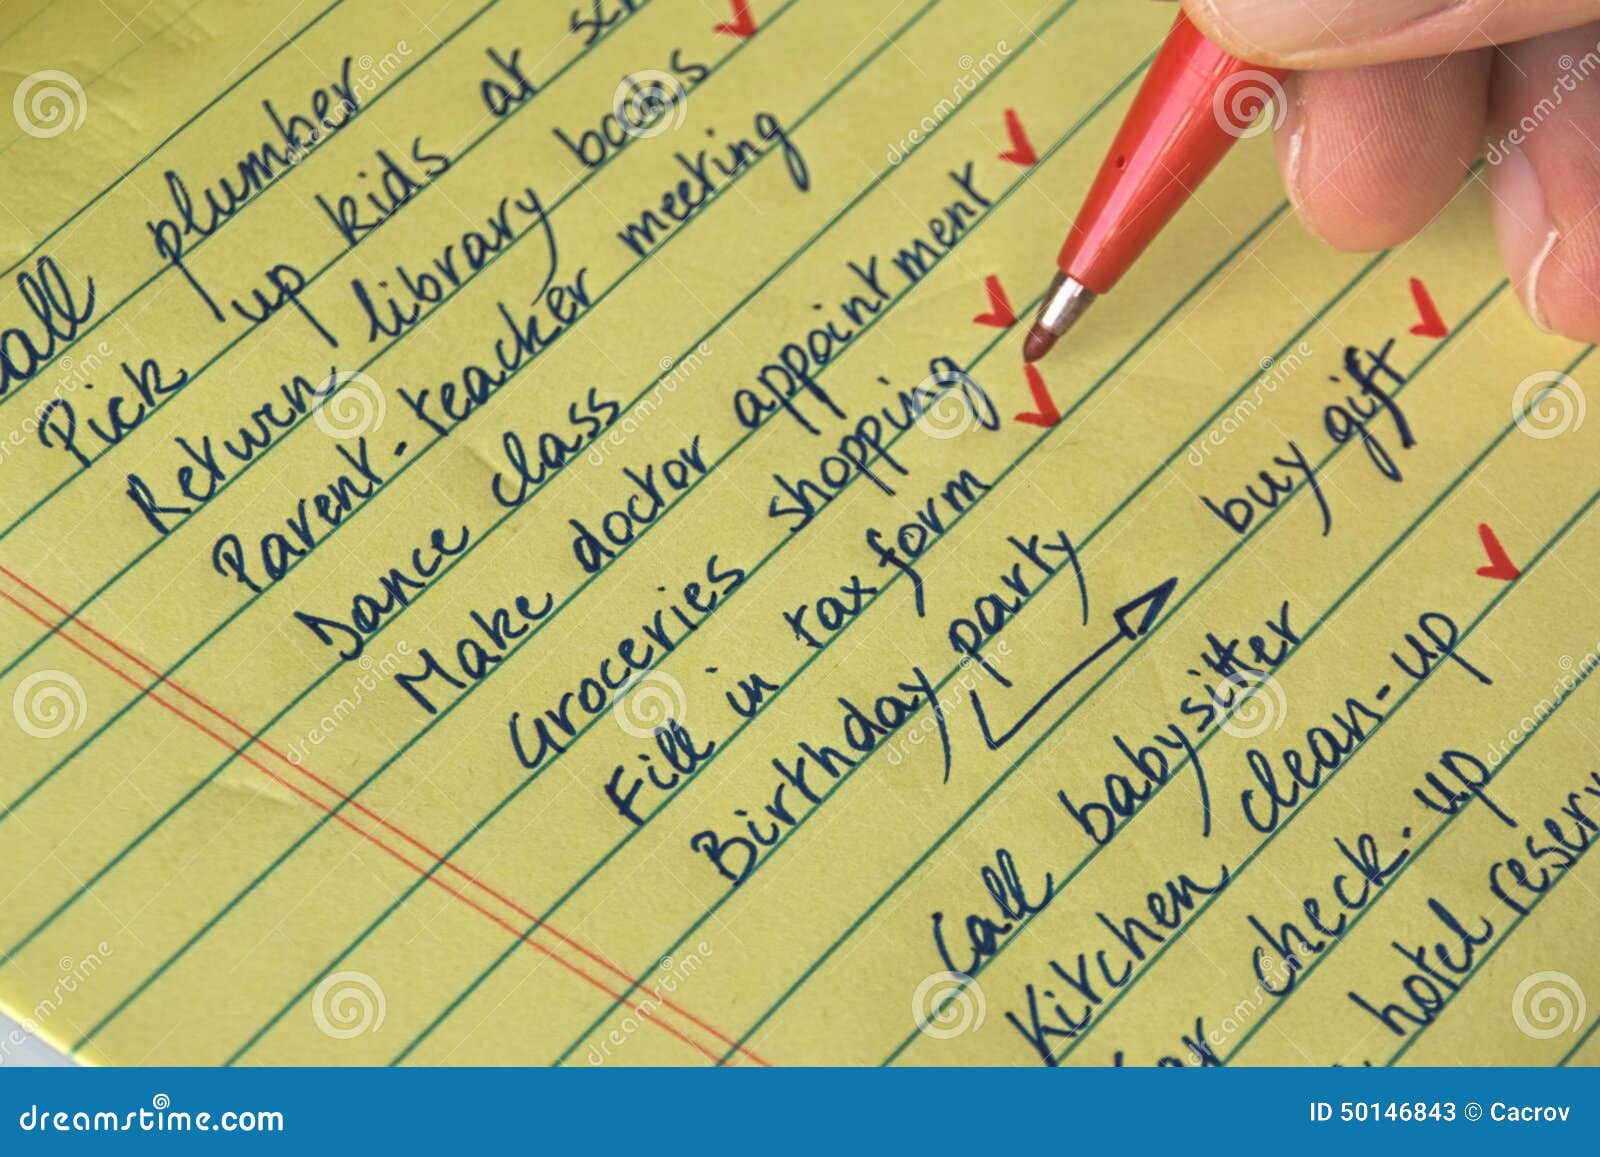 Call plumber
Pick up kids at
Return library books
Parent-teacher meeting
Dance class
Make doctor appointment
Groceries shopping
Fill in tax form
Birthday party
buy gift
Call babysitter
Kitchen clean-up
check-up
hotel
dreamstime.com
ID 50146843 © Cacrov